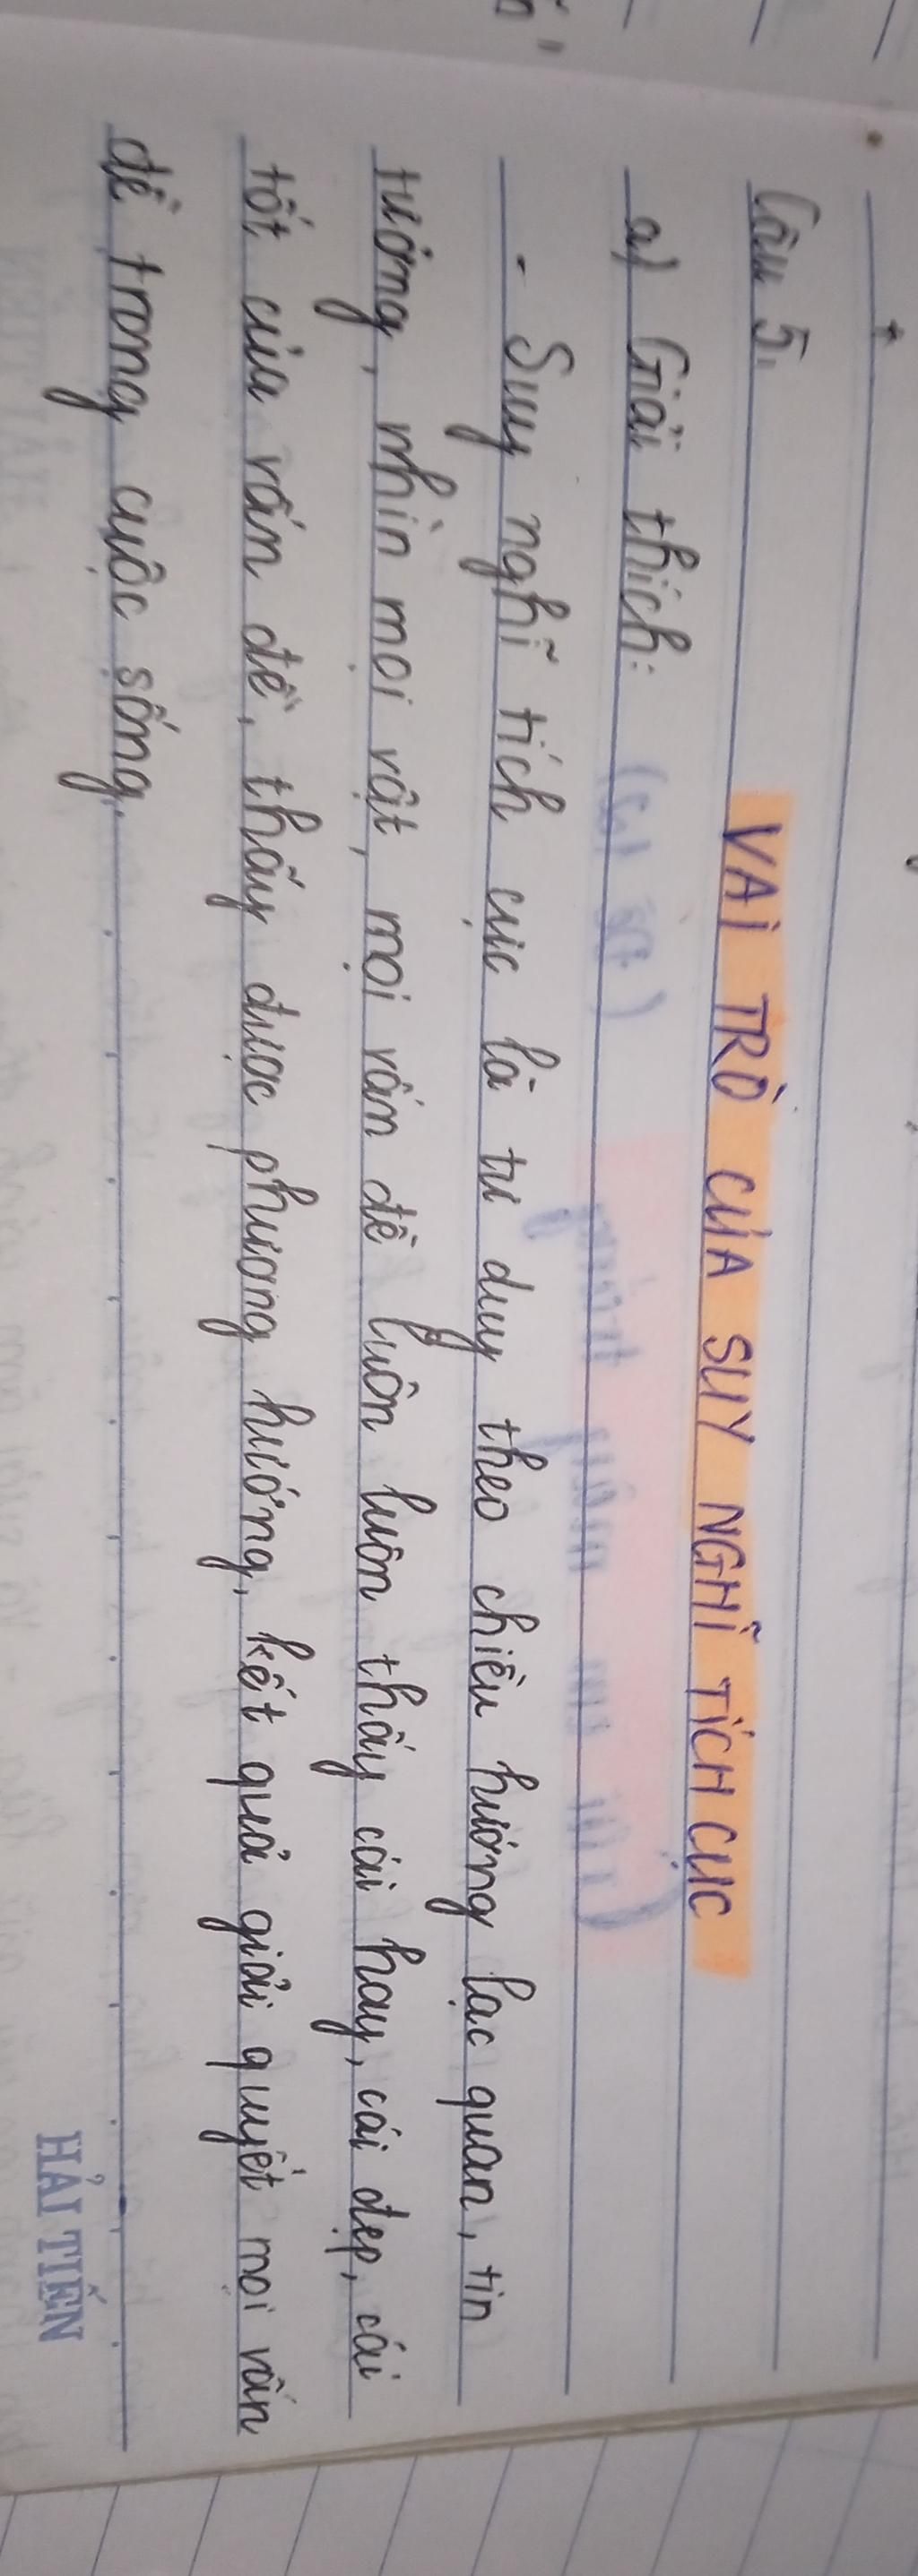 Câu 5.
VAI TRÒ CỦA SUY NGHĨ TÍCH CỰC
a) Giải thích:
- Suy nghĩ tích cực là tư duy theo chiều hướng lạc quan, tin
tưởng, nhìn mọi vật, mọi vấn đề luôn luôn thấy cái hay, cái đẹp, cái
tốt của vấn đề, thấy được phương hướng, kết quả giải quyết mọi vấn
đề trong cuộc sống.
HẢI TIẾN